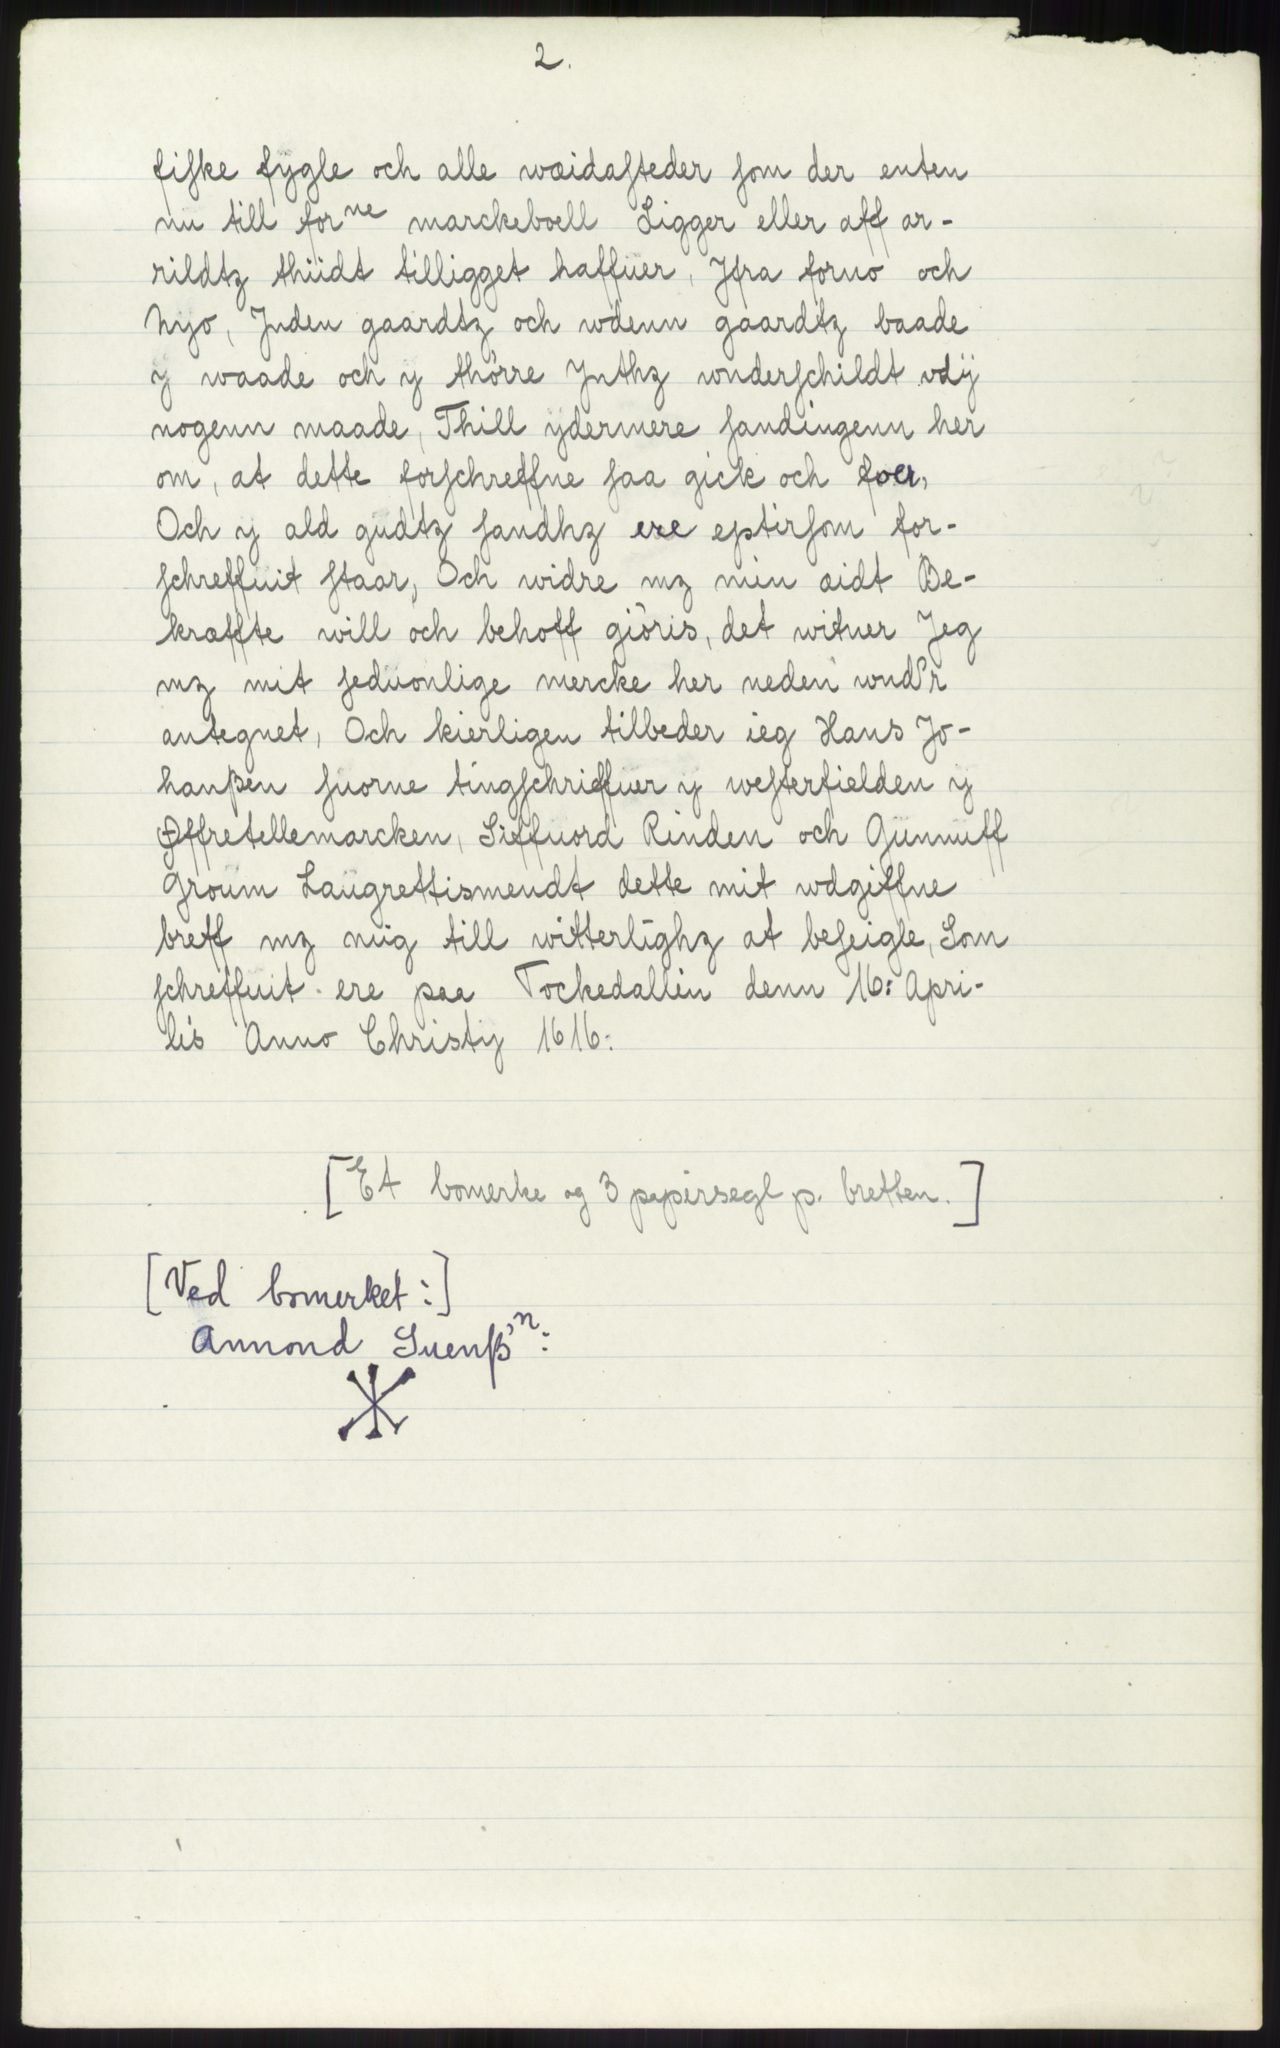 2.
fiſke fÿgle och alle wæidaſteder ſom der enten
nu till forne marckeboell Ligger eller aff ar-
rildtz thiidt tilligget haffuer, Jfra forno och
Nyo, Jnden gaardtz och wdenn gaardtz baade
y waade och y thörre Jnthz wnderſchildt vdÿ
nogenn maade, Thill ÿdermere ſandingenn her
om, at dette forſchreffne ſaa gick och foer,
Och y ald gudtz ſandhz ere eptirſom for-
ſchreffuit ſtaar, Och widre mz min æidt Be-
kræffte will och behoff giöris, det witner Jeg
mz mit ſeduonlige mercke her neden wnd'r
antegnet, Och kierligen tilbeder ieg Hans Jo-
hanßen ſuorne tingſchriffuer y weſterfielden y
Øffretellemarcken, Siffuord Rinden och Gunnuff
Groum Laugrettismendt dette mit wdgiffne
breff mz mig till witterlighz at beſeigle, Som
ſchreffuit ere paa Tockedallin denn 16: Apri-
lis Anno Christy 1616:
[Et bomerke og 3 papirsegl p. bretten.]
[Ved bomerket:]
Annond Suenß'n: